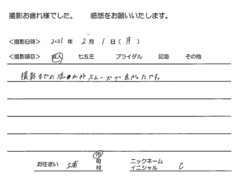 撮影お疲れ様でした。 感想をお願いいたします。
＜撮影日時＞ 2021 年 2 月 1 日 ( 月 )
＜撮影項目＞ 成人 七五三 ブライダル 記念 その他
撮影までの流れがスムーズで良かったです。
お住まい 浦 市 町 村 ニックネーム イニシャル C